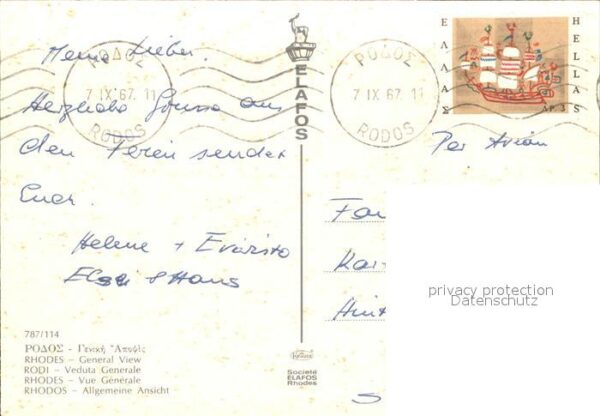 Meine Lieben
Herzliche Grüsse aus
den Ferien sendet
Euch
Helene + Evaristo
Elsa & Hans
787/114
ΡΟΔΟΣ - Γενικὴ Ἄποψις
RHODES - General View
RODI - Veduta Generale
RHODES - Vue Générale
RHODOS - Allgemeine Ansicht
ELAFOS
Société
ELAFOS
Rhodes
ΡΟΔΟΣ
7 IX 67. 11
RODOS
ΡΟΔΟΣ
7 IX 67. 11
RODOS
ΕΛΛΑΣ
HELLAS
ΔΡ. 3
Per Avion
privacy protection
Datenschutz